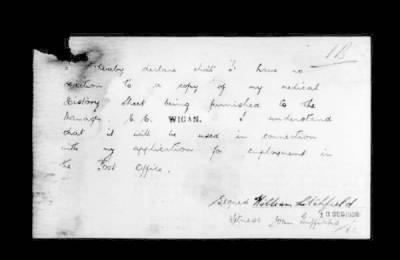 1B
I hereby declare that I have no
objection to a copy of my medical
History Sheet being furnished to the
Manager, E. E. WIGAN. I understand
that it will be used in connection
with my application for employment in
the Post Office.
Signed William Litchfield
Witness John Griffiths